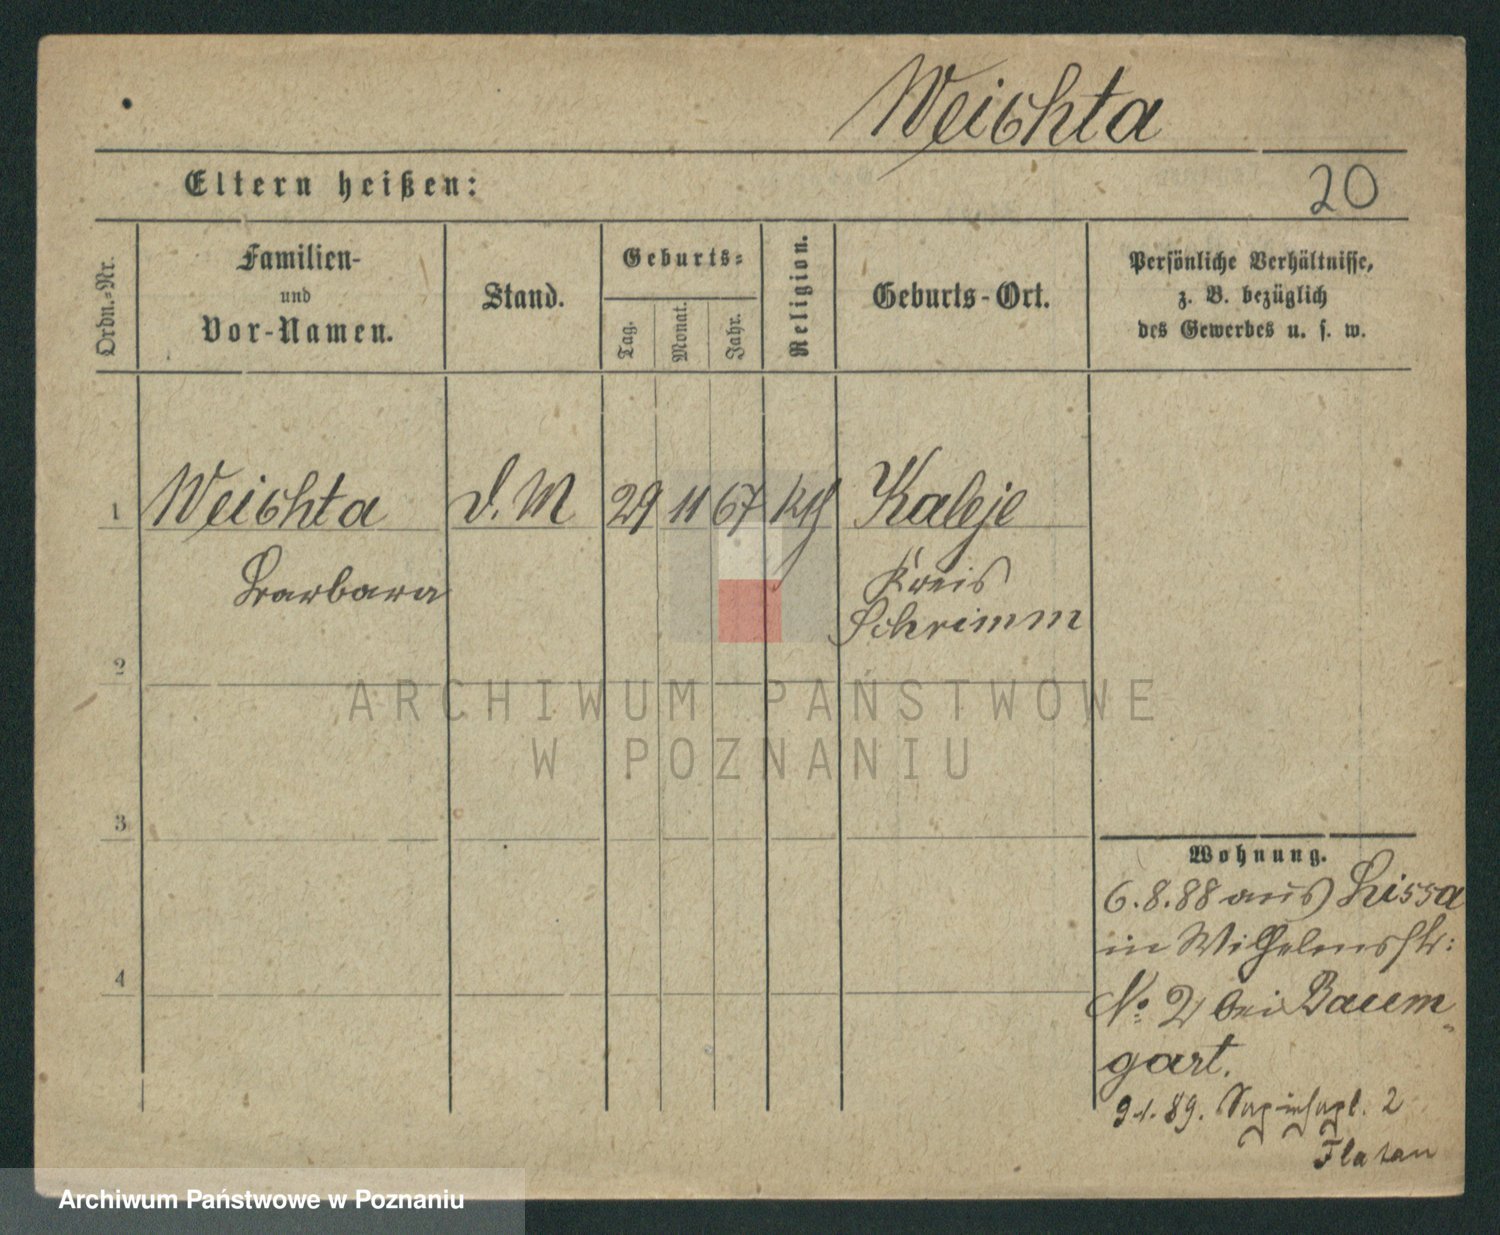 Weichta
Eltern heißen:
20
Ordn.-Nr.
Familien-
und
Vor-Namen.
Stand.
Geburts-
Tag.
Monat.
Jahr.
Religion.
Geburts-Ort.
Persönliche Verhältnisse,
z. B. bezüglich
des Gewerbes u. s. w.
1 Weichta D. M 29 11 67 kth Kaleje
Barbara
Kreis
Schrimm
2
3
4
Wohnung.
6.8.88 aus Lissa
in Wilhelmstr:
No 2 bei Baum-
gart.
9.1.89. Sapiehapl. 2
Flatau
ARCHIWUM PAŃSTWOWE
W POZNANIU
Archiwum Państwowe w Poznaniu